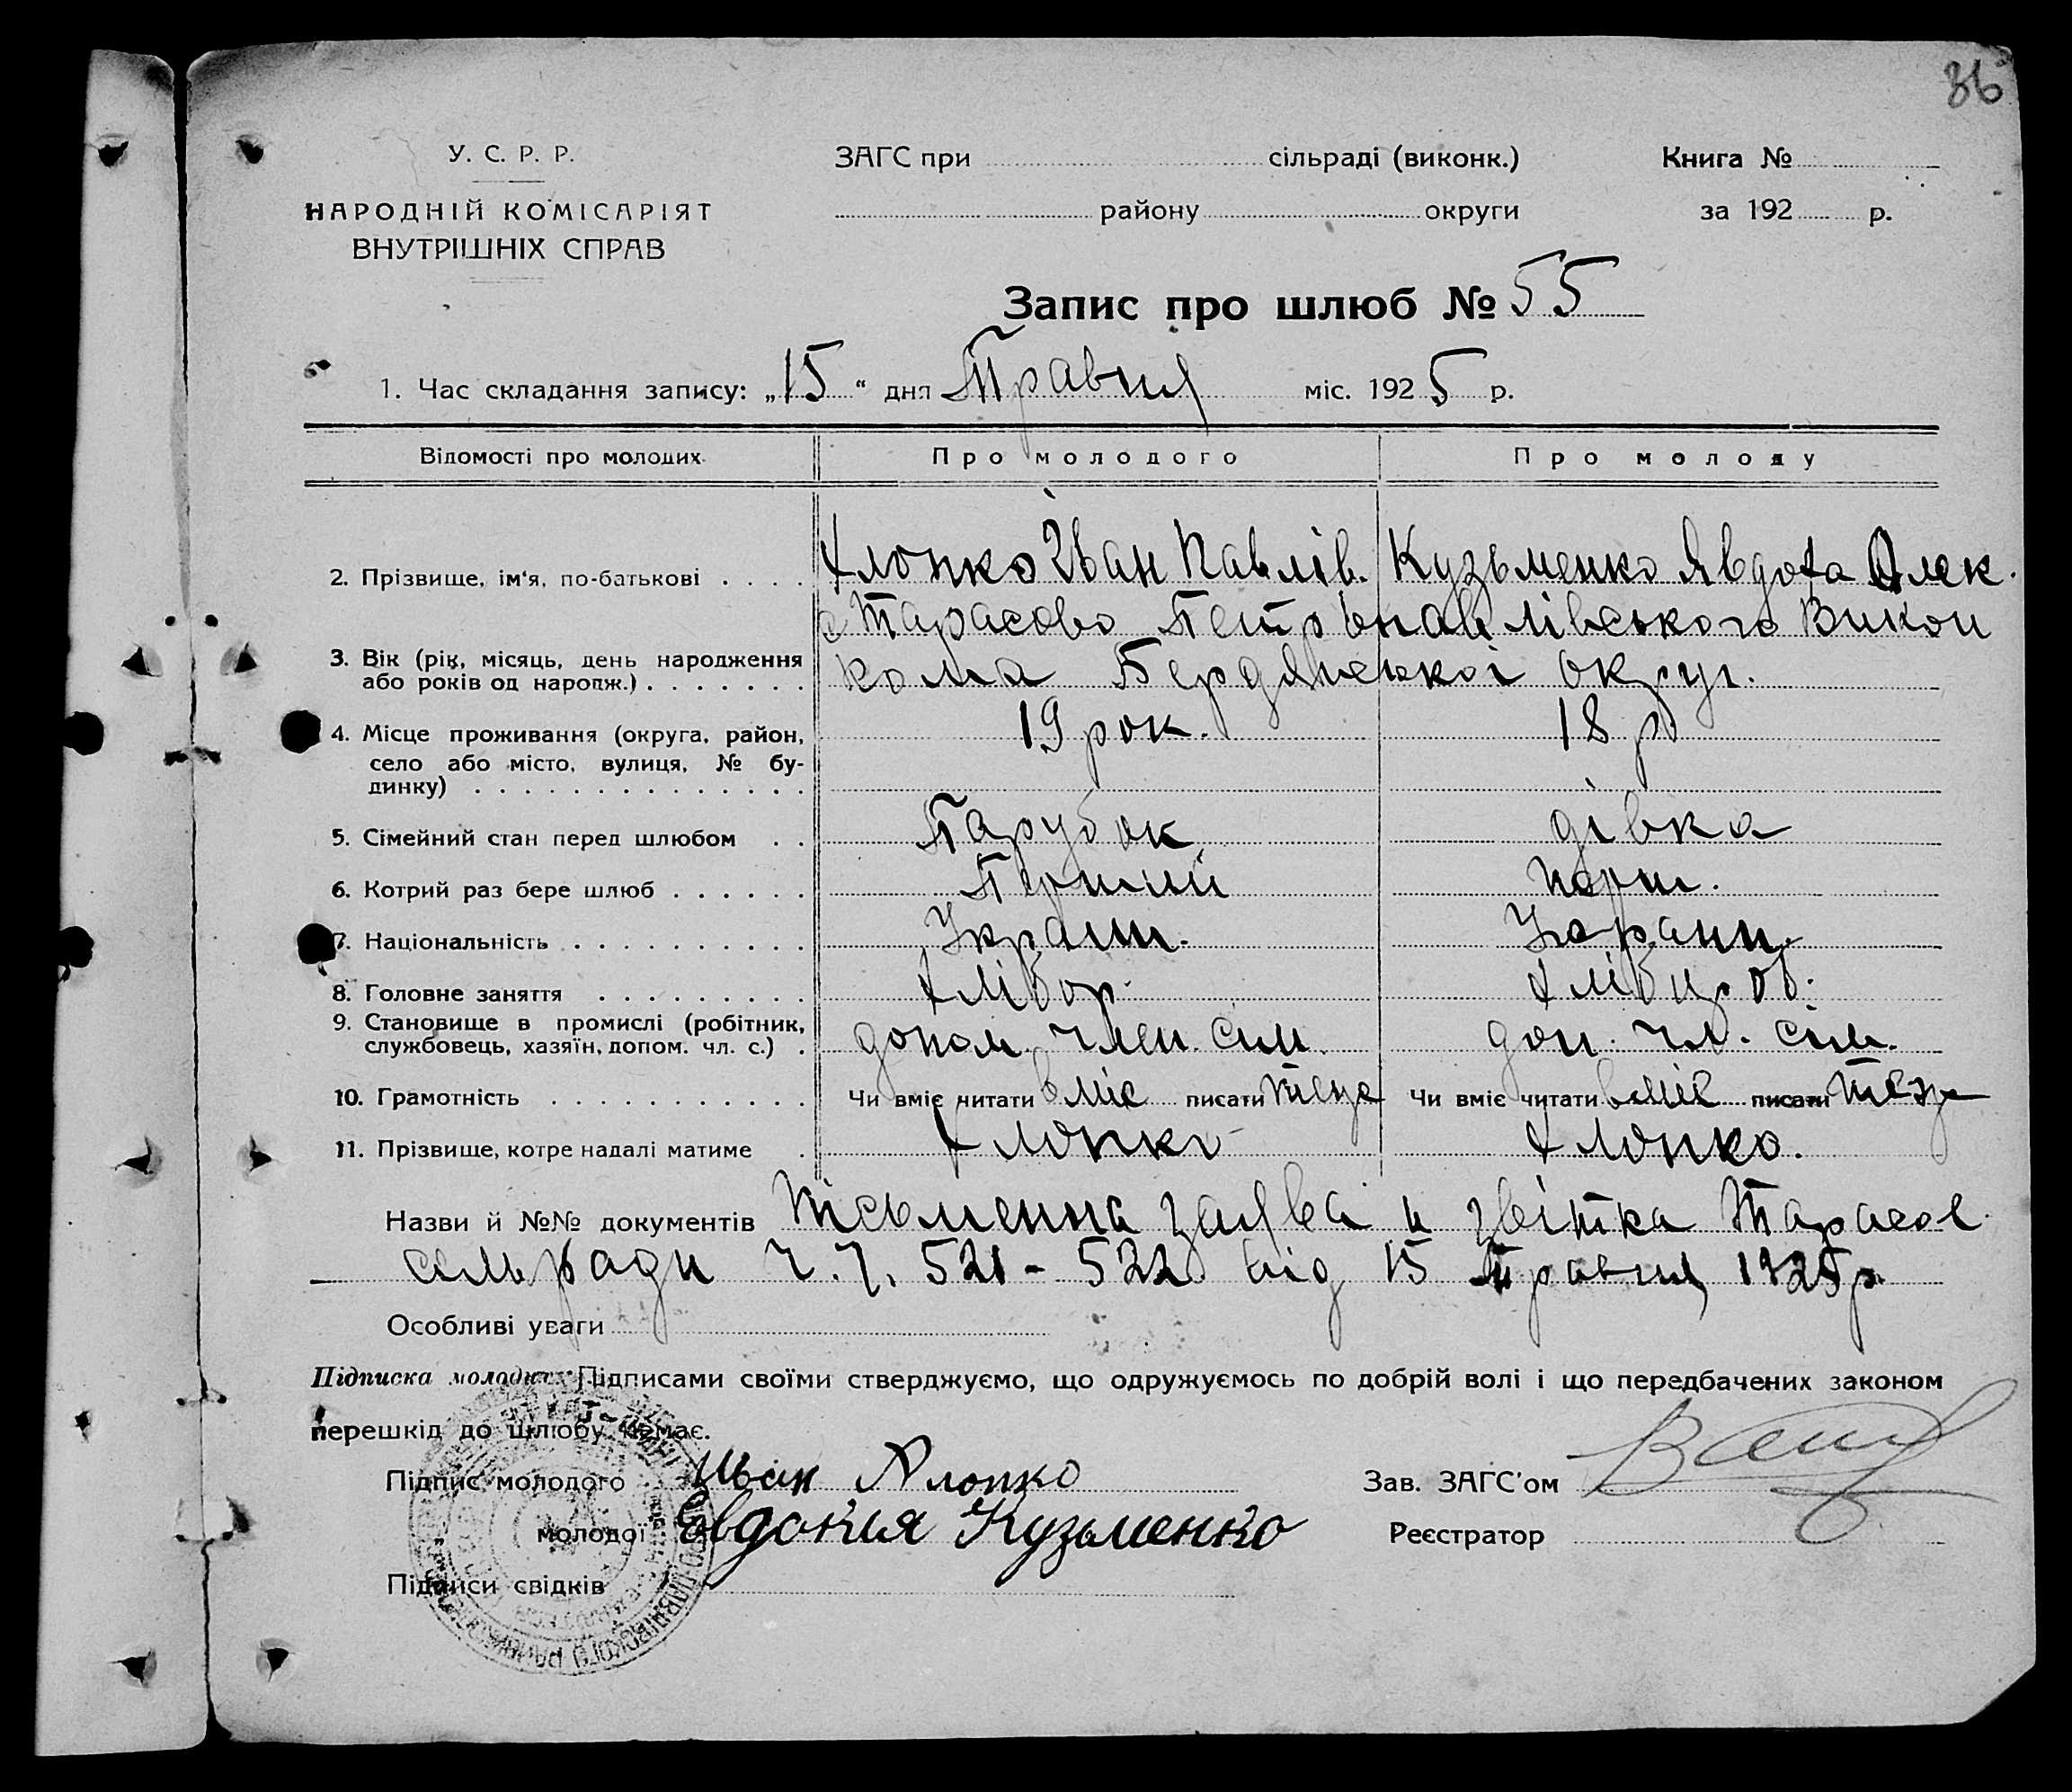 86
У. С. Р. Р.
НАРОДНІЙ КОМІСАРІЯТ
ВНУТРІШНІХ СПРАВ
ЗАГС при сільраді (виконк.)
району округи
Книга №
за 192 р.
Запис про шлюб № 55
1. Час складання запису: „15“ дня Травня міс. 1925 р.
Відомості про молодих Про молодого Про молоду
2. Прізвище, ім'я, по-батькові . . . . Хлопко Іван Павлів. Кузьменко Явдота Олек.
с Тарасово Петропавлівського Викон
3. Вік (рік, місяць, день народження
або років од народж.) . . . . . . . кома Бердянської округ.
4. Місце проживання (округа, район, 19 рок. 18 р.
село або місто, вулиця, № бу-
динку) . . . . . . . . . . . . . .
5. Сімейний стан перед шлюбом . . Парубок дівка
6. Котрий раз бере шлюб . . . . . . Перший перш.
7. Національність . . . . . . . . . . Україн.
8. Головне заняття . . . . . . . . . Хлібор.
9. Становище в промислі (робітник,
службовець, хазяїн, допом. чл. с.) . допом. член. сим. доп. чл. сім.
10. Грамотність . . . . . . . . . . . Чи вміє читати вміє писати теж Чи вміє читати вміє писати теж
11. Прізвище, котре надалі матиме . Хлопко Хлопко.
Назви й №№ документів пісьменна заява и звітка Тарасов.
сільради ч.ч. 521 - 522 від 15 травня 1925 р.
Особливі уваги
Підписка молодих: Підписами своїми стверджуємо, що одружуємось по добрій волі і що передбачених законом
перешкід до шлюбу немає.
Підпис молодого Иван Хлопко
Зав. ЗАГС'ом
молодої Евдокия Кузьменко
Реєстратор
Підписи свідків